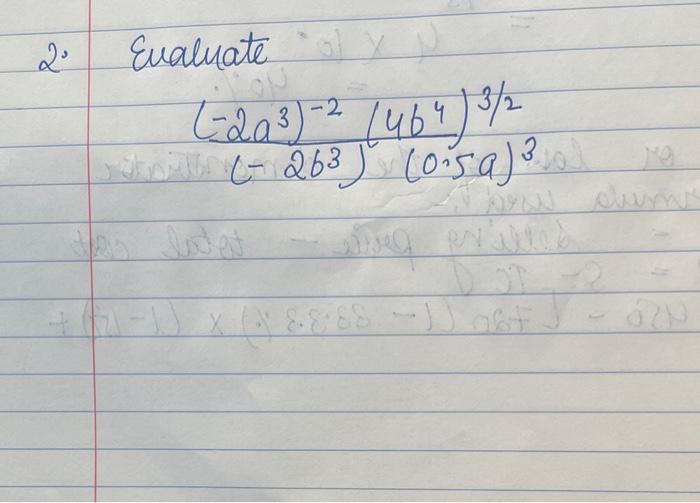 2. Evaluate
(-2a³)⁻² (4b⁴)^3/2
(-2b³) (0.5a)³